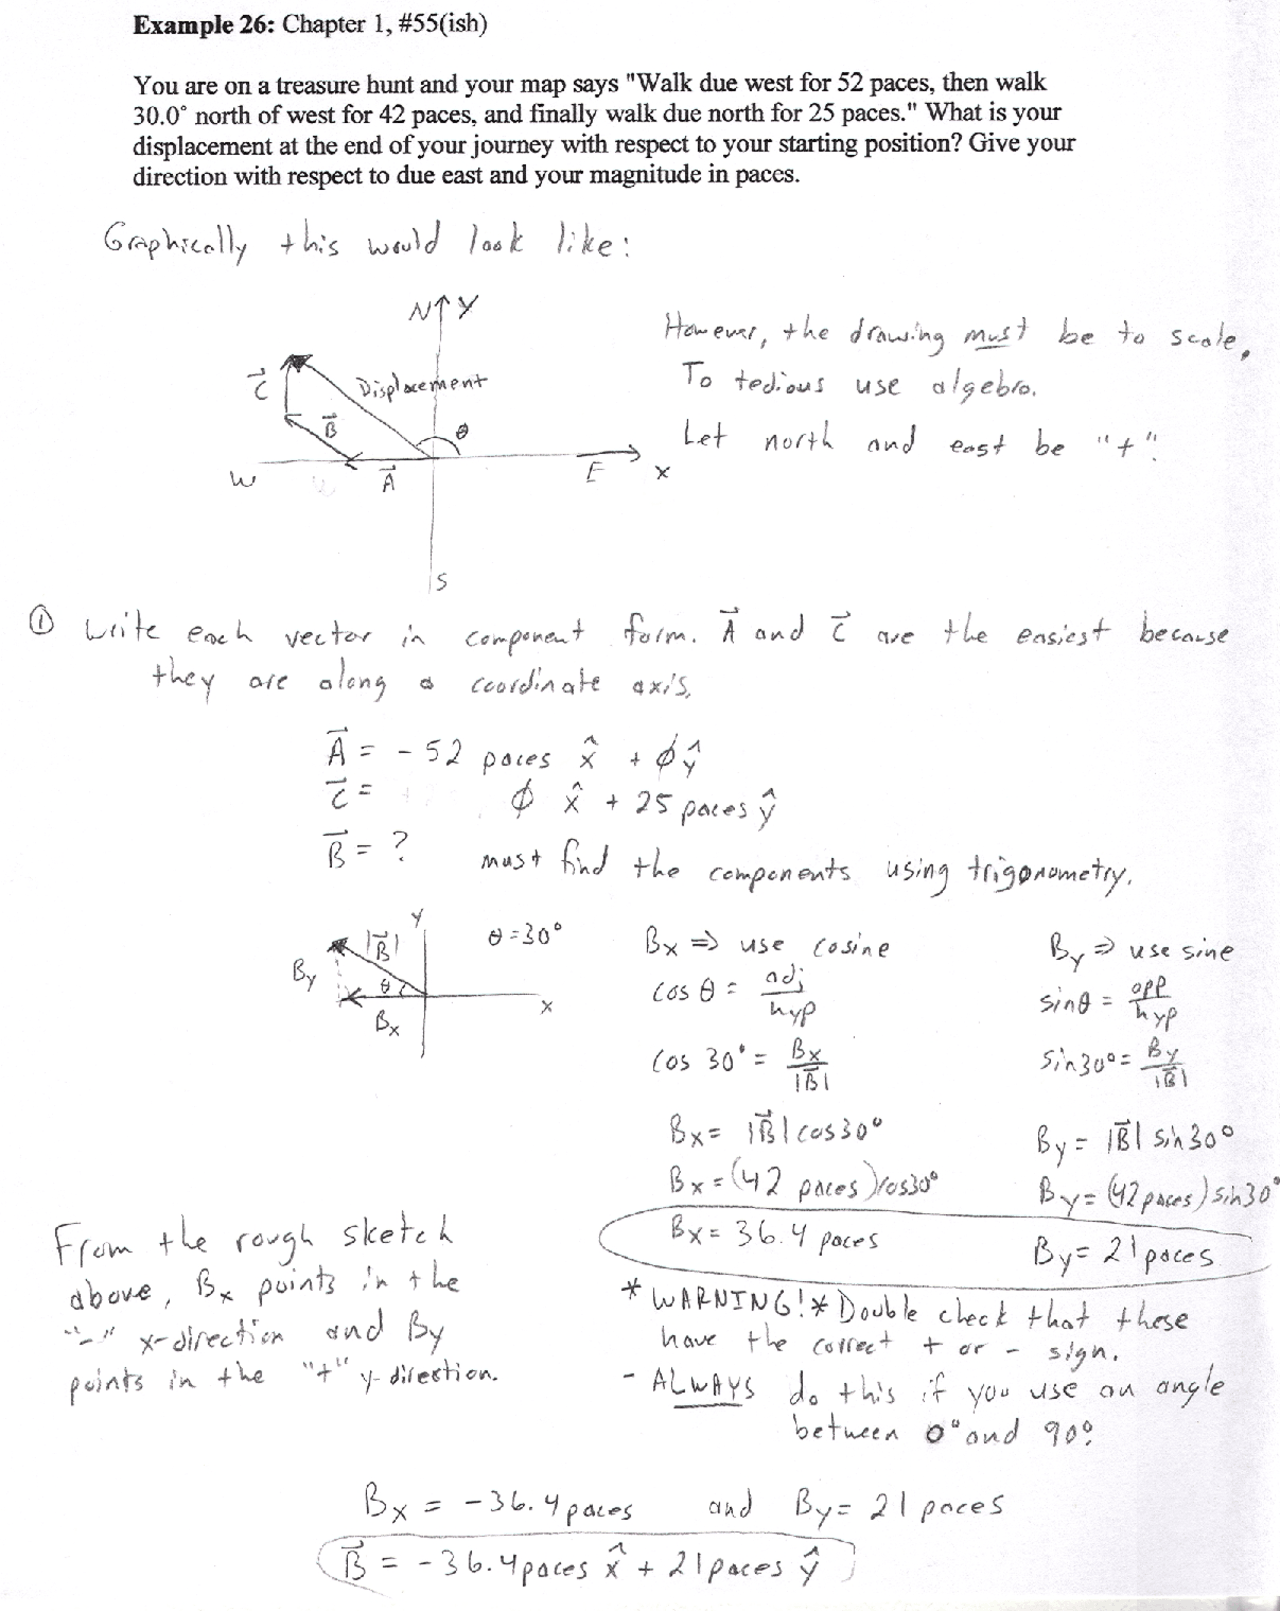 Example 26: Chapter 1, #55(ish)
You are on a treasure hunt and your map says "Walk due west for 52 paces, then walk
30.0° north of west for 42 paces, and finally walk due north for 25 paces." What is your
displacement at the end of your journey with respect to your starting position? Give your
direction with respect to due east and your magnitude in paces.
Graphically this would look like:
N↑ Y
However, the drawing must be to scale,
To tedious use algebra.
Let north and east be "+".
C⃗
Displacement
B⃗
θ
W
A⃗
E
x
S
① Write each vector in component form. A⃗ and C⃗ are the easiest because
they are along a coordinate axis.
A⃗ = - 52 paces x̂ + ∅ŷ
C⃗ = ∅ x̂ + 25 paces ŷ
B⃗ = ? must find the components using trigonometry.
y
|B⃗|
θ = 30°
By
θ
Bx
x
Bx ⇒ use cosine
cos θ = adj/hyp
cos 30° = Bx/|B⃗|
Bx = |B⃗| cos30°
Bx = (42 paces) cos30°
Bx = 36.4 paces
By ⇒ use sine
sinθ = opp/hyp
sin30° = By/|B⃗|
By = |B⃗| sin30°
By = (42 paces) sin30°
By = 21 paces
From the rough sketch
above, Bx points in the
"-" x-direction and By
points in the "+" y-direction.
* WARNING! * Double check that these
have the correct + or - sign.
- ALWAYS do this if you use an angle
between 0° and 90°.
Bx = -36.4 paces and By = 21 paces
B⃗ = -36.4 paces x̂ + 21 paces ŷ